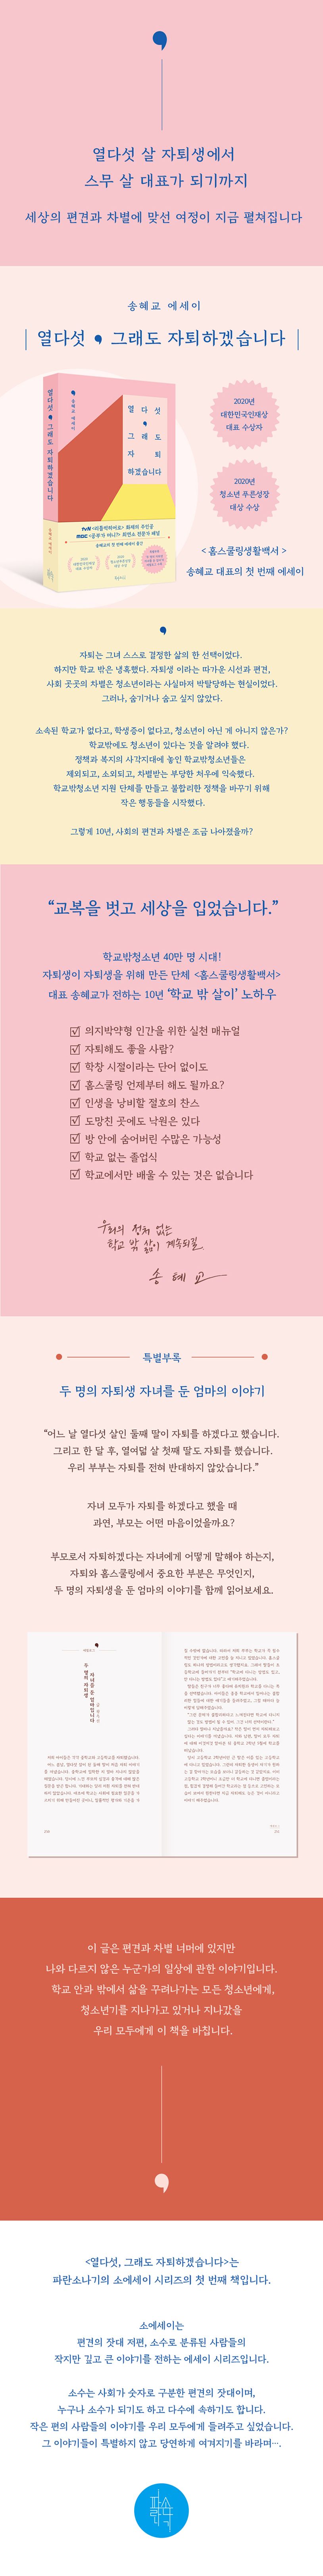 열다섯 살 자퇴생에서
스무 살 대표가 되기까지
세상의 편견과 차별에 맞선 여정이 지금 펼쳐집니다
송혜교 에세이
열다섯, 그래도 자퇴하겠습니다
열다섯, 그래도 자퇴하겠습니다
송혜교 에세이
열다섯,
그래도
자퇴
하겠습니다
2020년
대한민국인재상
대표 수상자
2020년
청소년 푸른성장
대상 수상
< 홈스쿨링생활백서 >
송혜교 대표의 첫 번째 에세이
자퇴는 그녀 스스로 결정한 삶의 한 선택이었다.
하지만 학교 밖은 냉혹했다. 자퇴생 이라는 따가운 시선과 편견,
사회 곳곳의 차별은 청소년이라는 사실마저 박탈당하는 현실이었다.
그러나, 숨기거나 숨고 싶지 않았다.
소속된 학교가 없다고, 학생증이 없다고, 청소년이 아닌 게 아니지 않은가?
학교밖에도 청소년이 있다는 것을 알려야 했다.
정책과 복지의 사각지대에 놓인 학교밖청소년들은
제외되고, 소외되고, 차별받는 부당한 처우에 익숙했다.
학교밖청소년 지원 단체를 만들고 불합리한 정책을 바꾸기 위해
작은 행동들을 시작했다.
그렇게 10년, 사회의 편견과 차별은 조금 나아졌을까?
“교복을 벗고 세상을 입었습니다.”
학교밖청소년 40만 명 시대!
자퇴생이 자퇴생을 위해 만든 단체 <홈스쿨링생활백서>
대표 송혜교가 전하는 10년 ‘학교 밖 살이’ 노하우
☑ 의지박약형 인간을 위한 실천 매뉴얼
☑ 자퇴해도 좋을 사람?
☑ 학창 시절이라는 단어 없이도
☑ 홈스쿨링 언제부터 해도 될까요?
☑ 인생을 낭비할 절호의 찬스
☑ 도망친 곳에도 낙원은 있다
☑ 방 안에 숨어버린 수많은 가능성
☑ 학교 없는 졸업식
☑ 학교에서만 배울 수 있는 것은 없습니다
우리의 정처 없는
학교 밖 삶이 계속되길
송혜교
특별부록
두 명의 자퇴생 자녀를 둔 엄마의 이야기
“어느 날 열다섯 살인 둘째 딸이 자퇴를 하겠다고 했습니다.
그리고 한 달 후, 열여덟 살 첫째 딸도 자퇴를 했습니다.
우리 부부는 자퇴를 전혀 반대하지 않았습니다.”
자녀 모두가 자퇴를 하겠다고 했을 때
과연, 부모는 어떤 마음이었을까요?
부모로서 자퇴하겠다는 자녀에게 어떻게 말해야 하는지,
자퇴와 홈스쿨링에서 중요한 부분은 무엇인지,
두 명의 자퇴생을 둔 엄마의 이야기를 함께 읽어보세요.
두 명의 자퇴생
자녀를 둔 엄마입니다
이 글은 편견과 차별 너머에 있지만
나와 다르지 않은 누군가의 일상에 관한 이야기입니다.
학교 안과 밖에서 삶을 꾸려나가는 모든 청소년에게,
청소년기를 지나가고 있거나 지나갔을
우리 모두에게 이 책을 바칩니다.
<열다섯, 그래도 자퇴하겠습니다>는
파란소나기의 소에세이 시리즈의 첫 번째 책입니다.
소에세이는
편견의 잣대 저편, 소수로 분류된 사람들의
작지만 깊고 큰 이야기를 전하는 에세이 시리즈입니다.
소수는 사회가 숫자로 구분한 편견의 잣대이며,
누구나 소수가 되기도 하고 다수에 속하기도 합니다.
작은 편의 사람들의 이야기를 우리 모두에게 들려주고 싶었습니다.
그 이야기들이 특별하지 않고 당연하게 여겨지기를 바라며….
파란소나기